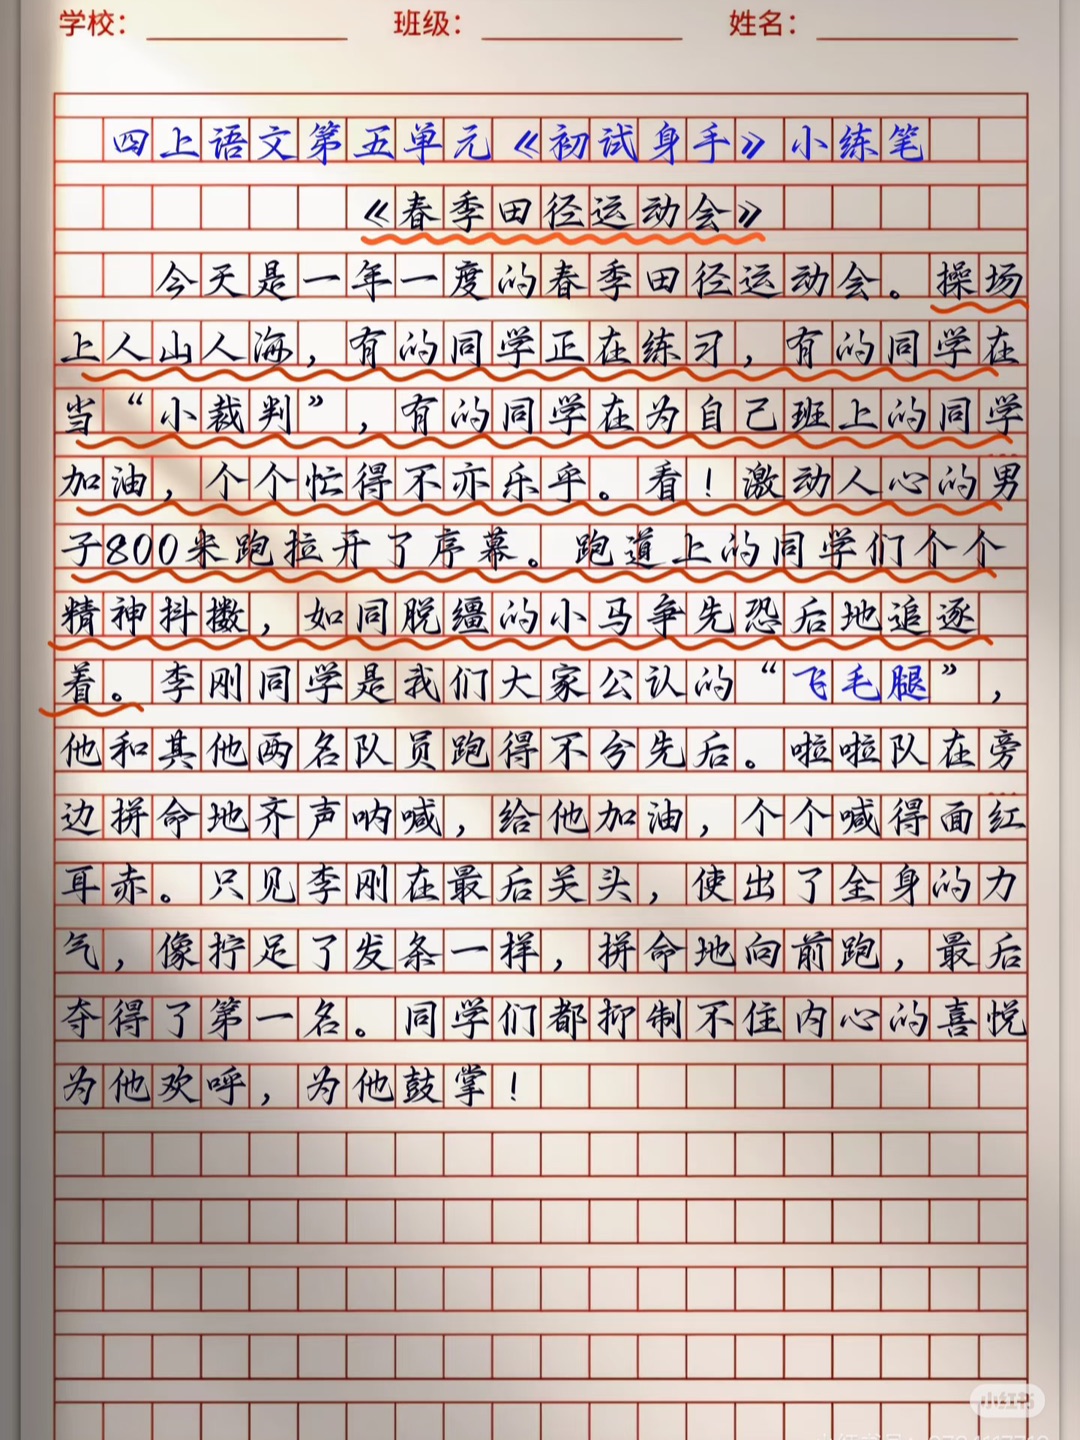 学校： 班级： 姓名：
四上语文第五单元《初试身手》小练笔
《春季田径运动会》
今天是一年一度的春季田径运动会。操场
上人山人海，有的同学正在练习，有的同学在
当“小裁判”，有的同学在为自己班上的同学
加油，个个忙得不亦乐乎。看！激动人心的男
子800米跑拉开了序幕。跑道上的同学们个个
精神抖擞，如同脱缰的小马争先恐后地追逐
着。李刚同学是我们大家公认的“飞毛腿”，
他和其他两名队员跑得不分先后。啦啦队在旁
边拼命地齐声呐喊，给他加油，个个喊得面红
耳赤。只见李刚在最后关头，使出了全身的力
气，像拧足了发条一样，拼命地向前跑，最后
夺得了第一名。同学们都抑制不住内心的喜悦
为他欢呼，为他鼓掌！
小红书